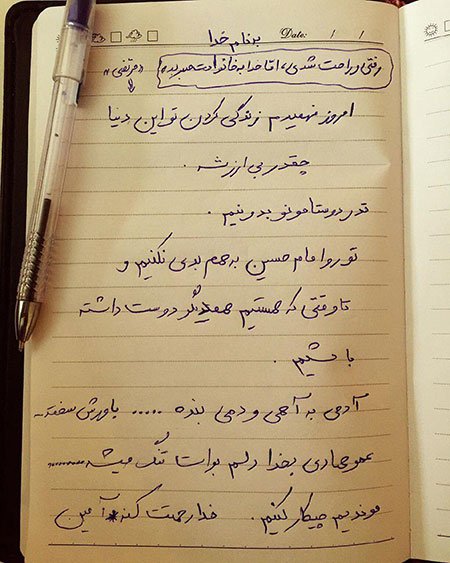 بنام خدا
Date: / /
رفتی و راحت شدی، اما خدا به خانوادت صبر بده
«مرتضی»
امروز فهمیدم زندگی کردن تو این دنیا
چقدر بی ارزشه .
قدر دوستامونو بدونیم .
تورو امام حسین به هم بدی نکنیم و
تا وقتی که هستیم همدیگر دوست داشته
باشیم .
آدمی به آهی و دمی بنده ..... باورش سخته...
عمو بخدا دلم برات تنگ میشه ........
موندیم چیکار کنیم . خدا رحمتت کنه آمین